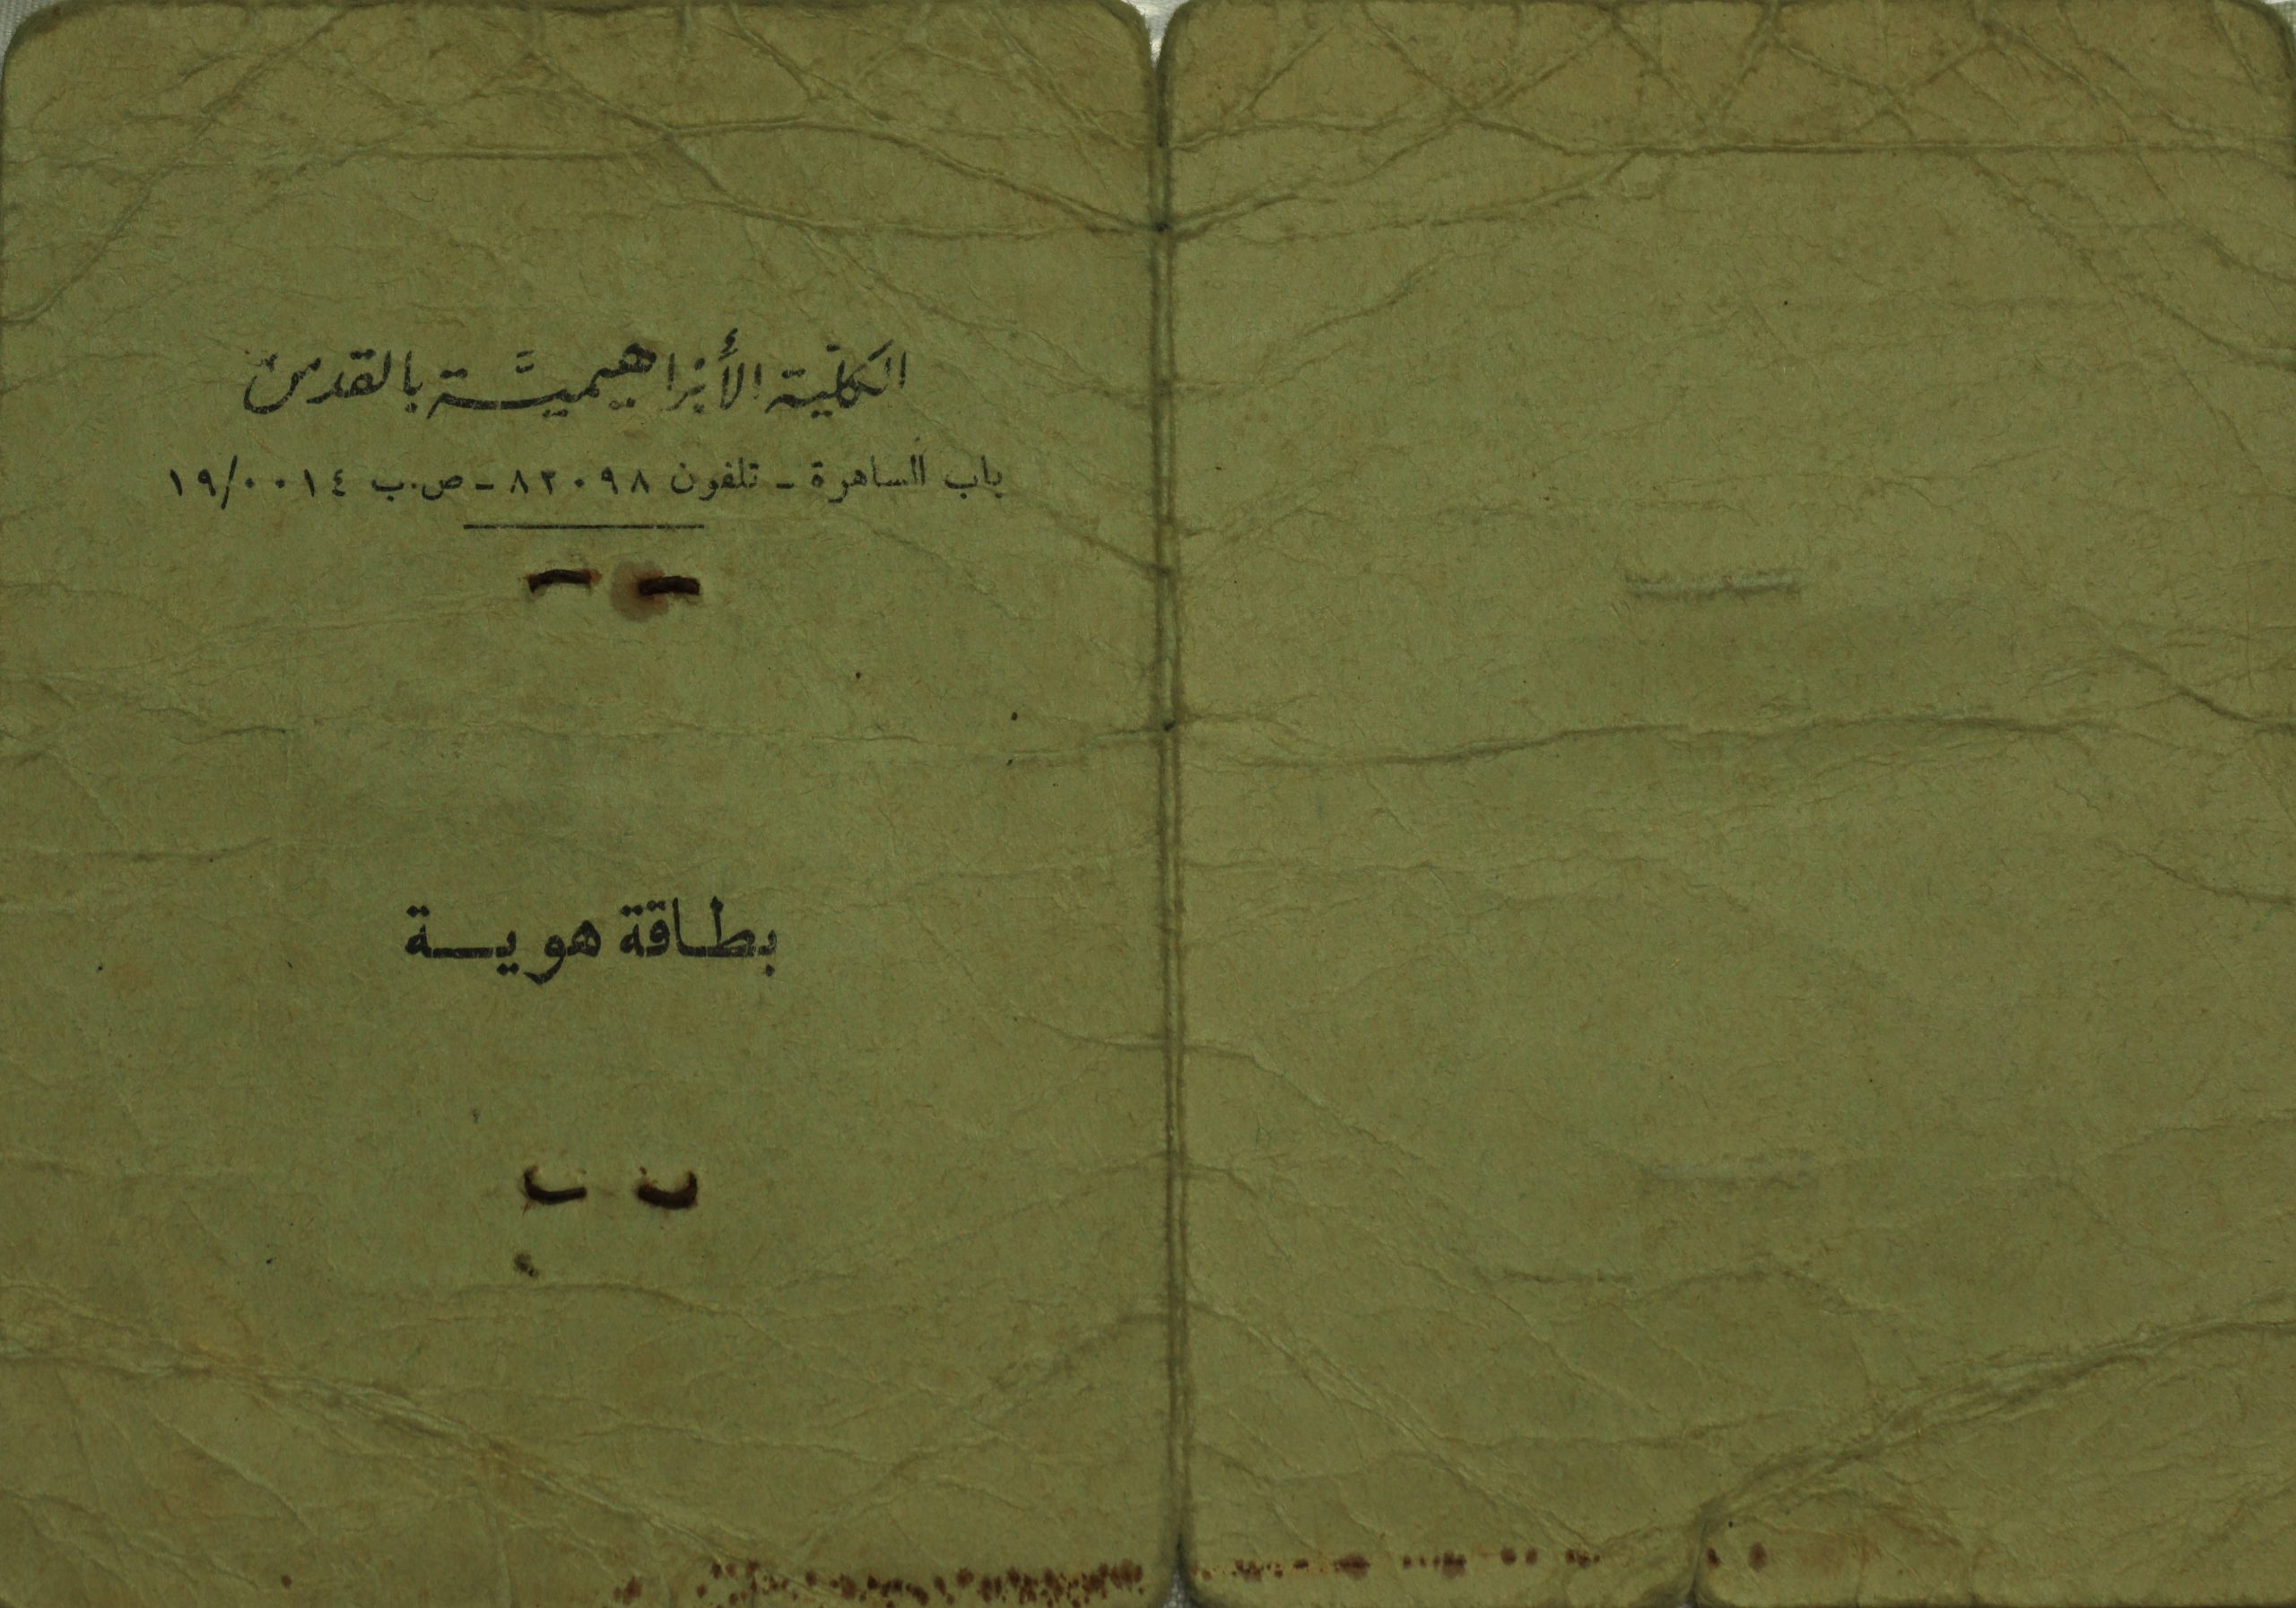 الكليّة الأبراهيميّة بالقدس
باب الساهرة - تلفون ٨٢٠٩٨ - ص.ب ١٩/٠٠١٤
بطاقة هوية